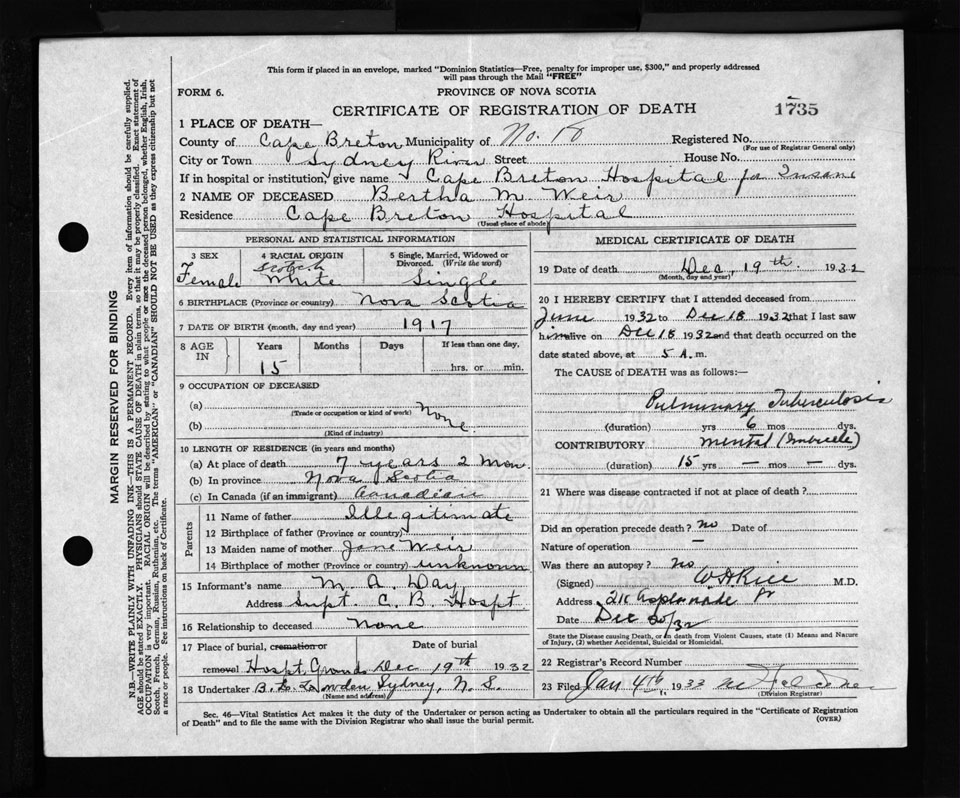 This form if placed in an envelope, marked "Dominion Statistics—Free, penalty for improper use, $300," and properly addressed
will pass through the Mail "FREE"
FORM 6. PROVINCE OF NOVA SCOTIA
CERTIFICATE OF REGISTRATION OF DEATH 1735
1 PLACE OF DEATH—
County of Cape Breton Municipality of No. 18 Registered No.
(For use of Registrar General only)
City or Town Sydney River Street House No.
If in hospital or institution, give name Cape Breton Hospital for Insane
2 NAME OF DECEASED Bertha M. Weir
Residence Cape Breton Hospital
(Usual place of abode)
PERSONAL AND STATISTICAL INFORMATION
3 SEX 4 RACIAL ORIGIN 5 Single, Married, Widowed or
Divorced. (Write the word)
Female Scotch White Single
6 BIRTHPLACE (Province or country) Nova Scotia
7 DATE OF BIRTH (month, day and year) 1917
8 AGE IN Years Months Days If less than one day,
15 hrs. or min.
9 OCCUPATION OF DECEASED
(a) None
(Trade or occupation or kind of work)
(b)
(Kind of industry)
10 LENGTH OF RESIDENCE (in years and months)
(a) At place of death 7 years 2 Mon.
(b) In province Nova Scotia
(c) In Canada (if an immigrant) Canadian
Parents
11 Name of father Illegitimate
12 Birthplace of father (Province or country)
13 Maiden name of mother Jane Weir
14 Birthplace of mother (Province or country) unknown
15 Informant's name M. A. Day
Address Supt. C. B. Hospt
16 Relationship to deceased None
17 Place of burial, cremation or Date of burial
removal Hospt Grounds Dec 19th 1932
18 Undertaker Sydney, N. S.
(Name and address)
MEDICAL CERTIFICATE OF DEATH
19 Date of death Dec, 19th. 1932
(Month, day and year)
20 I HEREBY CERTIFY that I attended deceased from
June 1932 to Dec 18 1932 that I last saw
him alive on Dec 18 1932 and that death occurred on the
date stated above, at 5 A. m.
The CAUSE OF DEATH was as follows:—
Pulmonary Tuberculosis
(duration) yrs 6 mos dys.
CONTRIBUTORY Mental (Imbecile)
(duration) 15 yrs — mos — dys.
21 Where was disease contracted if not at place of death?
Did an operation precede death? no Date of
Nature of operation —
Was there an autopsy? no
(Signed) W H Rice M.D.
Address Esplanade
Date Dec 20/32
State the Disease causing Death, or in death from Violent Causes, state (1) Means and Nature
of Injury, (2) whether Accidental, Suicidal or Homicidal.
22 Registrar's Record Number
23 Filed Jan 4th, 1933
(Division Registrar)
Sec. 46—Vital Statistics Act makes it the duty of the Undertaker or person acting as Undertaker to obtain all the particulars required in the "Certificate of Registration
of Death" and to file the same with the Division Registrar who shall issue the burial permit. (OVER)
MARGIN RESERVED FOR BINDING
N.B.—WRITE PLAINLY WITH UNFADING INK—THIS IS A PERMANENT RECORD. Every item of information should be carefully supplied.
AGE should be stated EXACTLY. PHYSICIANS should STATE CAUSE OF DEATH in plain terms, so that it may be properly classified. Exact statement of
OCCUPATION is very important. RACIAL ORIGIN will be described by stating to what people or race the deceased person belonged, whether English, Irish,
Scotch, French, German, Russian, Ruthenian, etc. The terms "AMERICAN" or "CANADIAN" SHOULD NOT BE USED as they express citizenship but not
a race or people. Fee instructions on back of Certificate.